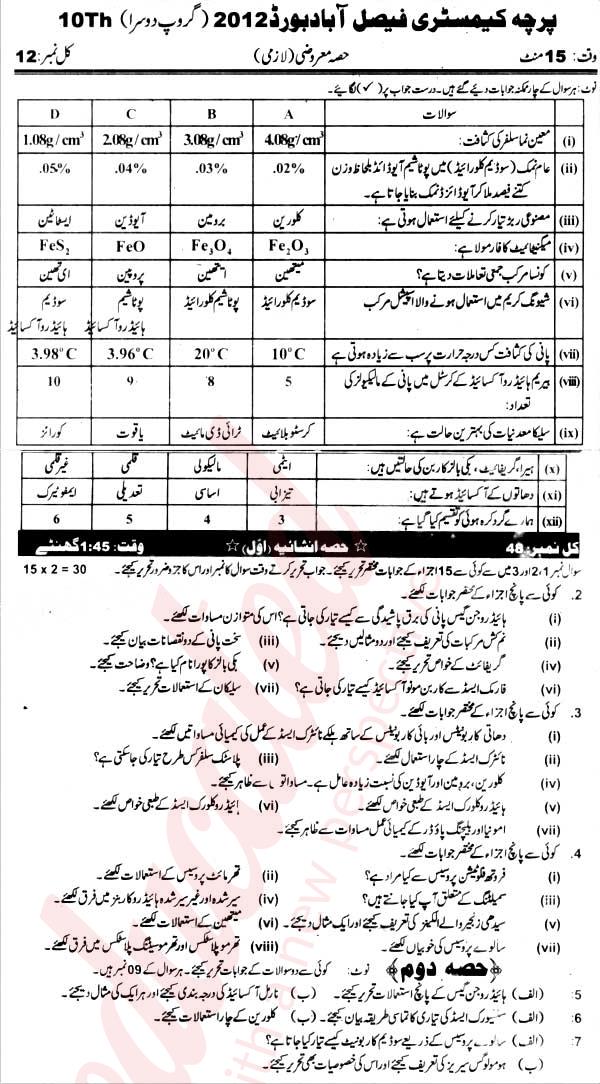 پرچہ کیمسٹری فیصل آباد بورڈ 2012 (گروپ دوسرا) 10Th
وقت: 15 منٹ حصہ معروضی (لازمی) کل نمبر: 12
نوٹ: ہر سوال کے چار ممکنہ جوابات دیئے گئے ہیں۔ درست جواب پر (✓) لگائیے۔
سوالات A B C D
(i) معین نما سلفر کی کثافت: 4.08g/cm³ 3.08g/cm³ 2.08g/cm³ 1.08g/cm³
(ii) عام نمک (سوڈیم کلورائیڈ) میں پوٹاشیم آیوڈائڈ بلحاظ وزن .02% .03% .04% .05%
کتنے فیصد ملا کر آیوڈائزڈ نمک بنایا جاتا ہے۔
(iii) مصنوعی ربڑ تیار کرنے کیلئے استعمال ہوتی ہے: کلورین برومین آیوڈین ایسٹاٹین
(iv) میگنیٹائیٹ کا فارمولا ہے: Fe₂O₃ Fe₃O₄ FeO FeS₂
(v) کونسا مرکب جمعی تعاملات دیتا ہے؟ میتھین ایتھین پروپین ای تھین
(vi) شیونگ کریم میں استعمال ہونے والا اسپیشل مرکب سوڈیم کلورائیڈ پوٹاشیم کلورائیڈ پوٹاشیم ہائیڈروآکسائیڈ سوڈیم ہائیڈروآکسائیڈ
(vii) پانی کی کثافت کس درجہ حرارت پر سب سے زیادہ ہوتی ہے 10°C 20°C 3.96°C 3.98°C
(viii) بیریم ہائیڈروآکسائیڈ کے کرسٹل میں پانی کے مالیکیولز کی 5 8 9 10
تعداد:
(ix) سلیکا معدنیات کی بہترین حالت ہے: کرسٹوبلائیٹ ٹرائی ڈی مائیٹ یاقوت کوارٹز
(x) ہیرا، گریفائیٹ، بکی بالز کاربن کی حالتیں ہیں: ایٹمی مالیکیولی قلمی غیر قلمی
(xi) دھاتوں کے آکسائیڈ ہوتے ہیں: تیزابی اساسی تعدیلی ایمفوٹیرک
(xii) ہمارے گرد کرہ ہوائی کو تقسیم کیا گیا ہے: 3 4 5 6
کل نمبر: 48 ☆ حصہ انشائیہ (اوّل) ☆ وقت: 1:45 گھنٹے
سوال نمبر 2،1 اور 3 میں سے کوئی سے 15 اجزاء کے جوابات مختصر تحریر کیجئے۔ جواب تحریر کرتے وقت سوال کا نمبر اور اس کا جزو ضرور تحریر کیجئے۔ 15 x 2 = 30
2. کوئی سے پانچ اجزاء کے مختصر جوابات لکھئے۔
(i) ہائیڈروجن گیس پانی کی برق پاشیدگی سے کیسے تیار کی جاتی ہے؟ اس کی متوازن مساوات لکھئے۔
(ii) نم کش مرکبات کی تعریف کیجئے اور دو مثالیں دیجئے۔ (iii) سخت پانی کے دو نقصانات بیان کیجئے۔
(iv) گریفائٹ کے خواص تحریر کیجئے۔ (v) بکی بالز کا پورا نام کیا ہے؟ وضاحت کیجئے۔
(vi) فارمک ایسڈ سے کاربن مونو آکسائیڈ کیسے تیار کی جاتی ہے؟ (vii) سلیکان کے استعمالات تحریر کیجئے۔
3. کوئی سے پانچ اجزاء کے مختصر جوابات لکھئے۔
(i) دھاتی کاربونیٹس اور بائی کاربونیٹس کے ساتھ ہلکے نائٹرک ایسڈ کے عمل کی کیمیائی مساواتیں لکھئے۔
(ii) نائٹرک ایسڈ کے چار استعمال لکھئے۔ (iii) پلاسٹک سلفر کس طرح تیار کی جاسکتی ہے؟
(iv) کلورین، برومین اور آیوڈین کی نسبت زیادہ عامل ہے۔ مساواتوں سے ظاہر کیجئے۔
(v) ہائیڈروکلورک ایسڈ کے طبعی خواص لکھئے۔ (vi) ہائیڈروکلورک ایسڈ کے طبعی خواص لکھئے۔
(vii) امونیا اور بلیچنگ پاؤڈر کے کیمیائی عمل مساوات سے ظاہر کیجئے۔
4. کوئی سے پانچ اجزاء کے مختصر جوابات لکھئے۔
(i) فروتھ فلوٹیشن پروسیس سے کیا مراد ہے؟ (ii) تھرمائٹ پروسیس کے استعمالات لکھئے۔
(iii) سمیلٹنگ کے متعلق آپ کیا جانتے ہیں؟ (iv) سیرشدہ اور غیر سیرشدہ ہائیڈروکاربنز میں فرق لکھئے۔
(v) سیدھی زنجیر والے الکینز کی تعریف کیجئے اور ایک مثال دیجئے۔ (vi) میتھین کے استعمالات لکھئے۔
(vii) سالوے پروسیس کی خوبیاں لکھئے۔ (viii) تھرموپلاسٹکس اور تھرموسیٹنگ پلاسٹکس میں فرق لکھئے۔
﴿حصہ دوم﴾ نوٹ: کوئی سے دو سوالات کے جوابات تحریر کیجئے۔ ہر سوال کے 09 نمبر ہیں۔
5: (الف) ہائیڈروجن گیس کے پانچ استعمالات تحریر کیجئے۔ (ب) نارمل آکسائیڈ کی درجہ بندی کیجئے اور ہر ایک کی مثال دیجئے۔
6: (الف) سلفیورک ایسڈ کی تیاری کا تماسی طریقہ بیان کیجئے۔ (ب) کلورین کے چار استعمالات لکھئے۔
7: (الف) سالوے پروسیس کے ذریعے سوڈیم کاربونیٹ کیسے تیار کیا جاتا ہے؟
(ب) ہومولوگس سیریز کی تعریف کیجئے اور اس کی خصوصیات بھی تحریر کیجئے۔